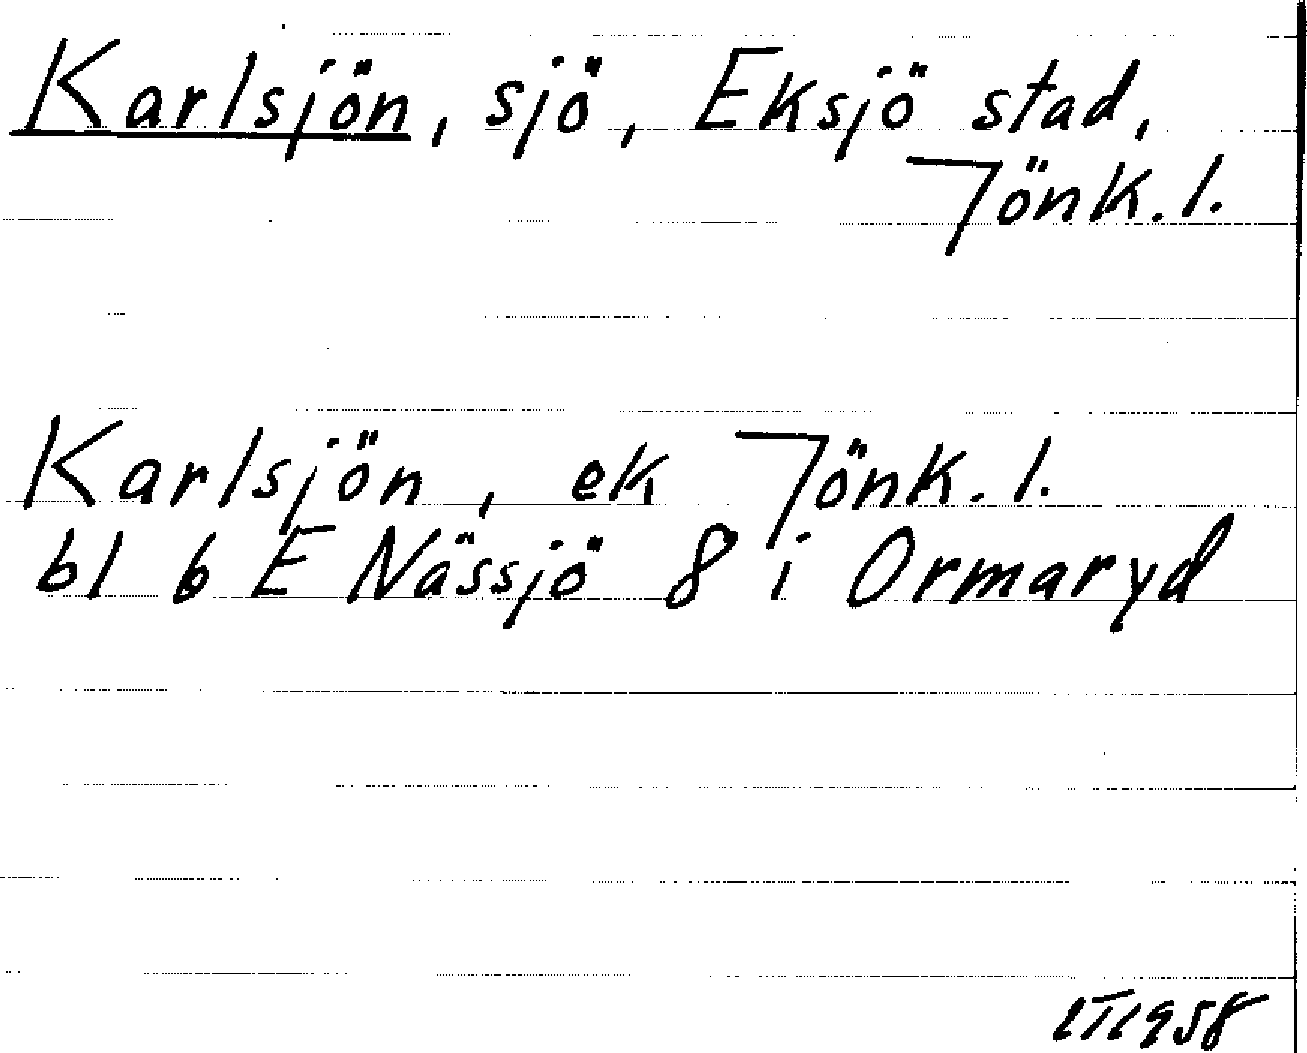 Karlsjön, sjö, Eksjö stad,
Jönk. l.
Karlsjön, ek Jönk. l.
bl 6 E Nässjö 8 i Ormaryd
1958